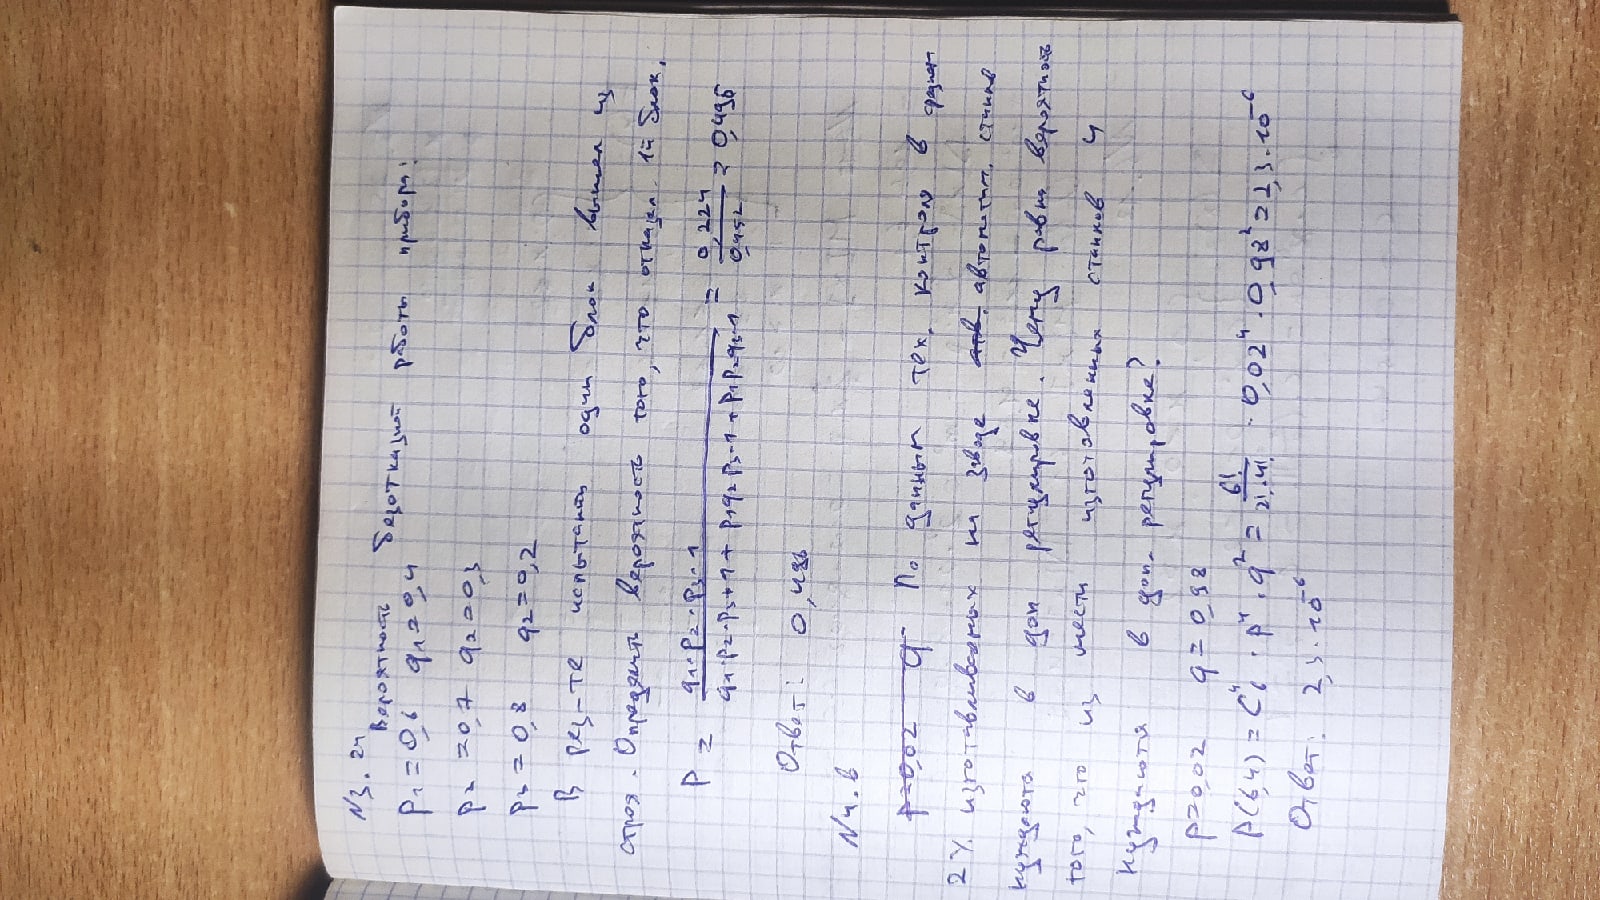 N3.24
Вероятность безотказной работы прибора:
p₁=0,6 q₁=0,4
p₂=0,7 q₂=0,3
p₃=0,8 q₂=0,2
В рез-те испытания один блок вышел из
строя. Определить вероятность того, что отказал 1й блок.
P = q₁·p₂·p₃·1 / q₁·p₂·p₃·1 + p₁q₂p₃·1 + p₁p₂q₃·1 = 0,224 / 0,452 = 0,496
Ответ: 0,496
N4.6
p=0,02 q По данным тех. контроля в среднем
2% изготавливаемых на заводе автоматич. станков
нуждаются в доп регулировке. Чему равна вероятность
того, что из шести изготовленных станков 4
нуждаются в доп. регулировке?
p=0,02 q=0,98
P(6,4)=C⁴₆·p⁴·q²=6!/2!·4! · 0,02⁴·0,98²=2,3·10⁻⁶
Ответ: 2,3·10⁻⁶